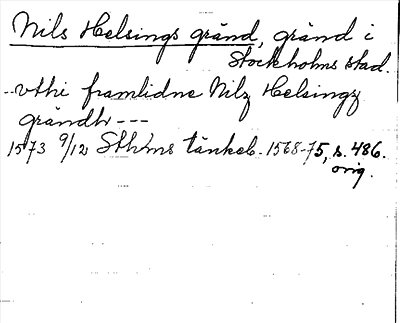 Nils Helsings gränd, gränd i
Stockholms stad.
--vthi framlidne Nilz Helsingz
grändh ---
1573 9/12 Sthlms tänkeb. 1568-75, s. 486.
orig.